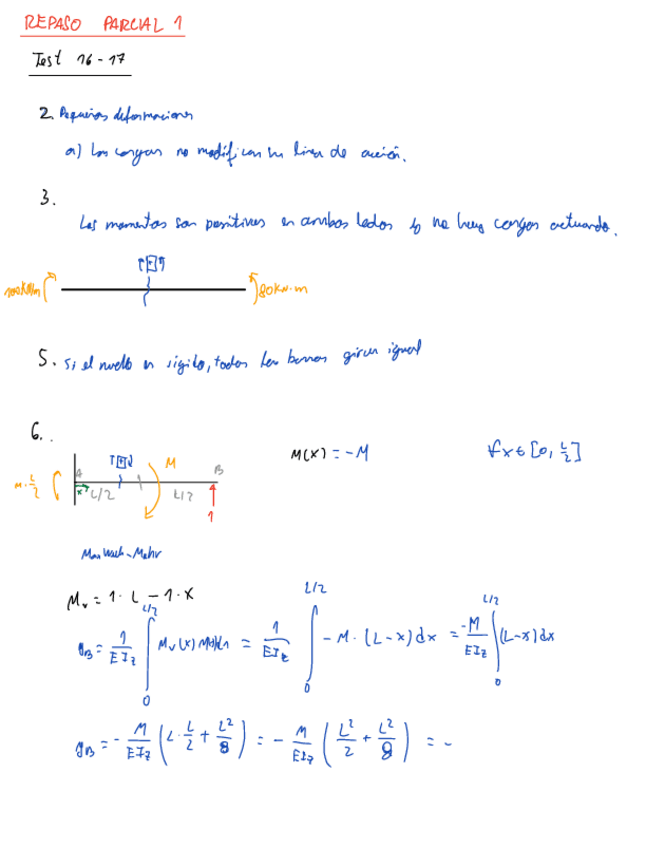 REPASO PARCIAL 1
Test 16-17
2. Pequeñas deformaciones
a) Las cargas no modifican su línea de acción.
3.
Los momentos son positivos en ambos lados y no hay cargas actuando.
100kN·m
80kN·m
5. Si el nudo es rígido, todas las barras giran igual
6.
M(x) = -M ∀x∈[0, L/2]
A M B
M·L/2
x L/2 L/2
1
Mohr
Mv = 1·L - 1·x
yB = 1/EIz ∫₀^{L/2} Mv(x) M(x)dx = 1/EIz ∫₀^{L/2} -M·(L-x)dx = -M/EIz ∫₀^{L/2} (L-x)dx
yB = - M/EIz (L·L/2 + L²/8) = - M/EIz (L²/2 + L²/8) = -